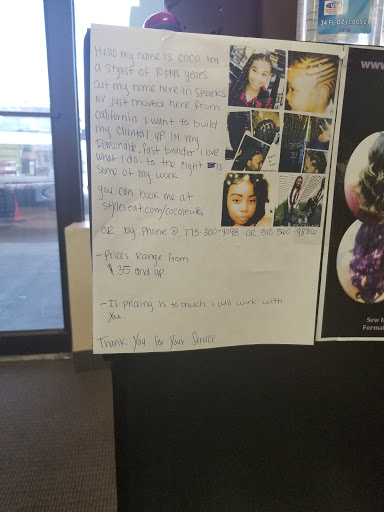 34 FL OZ (1.005 L)
Hello my name is COCO Im
a stylist of 10 plus years
out my home here in Sparks
NV Just moved here from
California I want to build
my cliental up Im very
Personable, fast braider I love
what I do. to the right is
some of my work
you can book me at
styleseat.com/
OR by phone @ 775-300-4098 or 510
-Prices Range from
$35 and up
-If pricing is to much I will work with
You
Thank You for Your Service
www
Sew
Formal